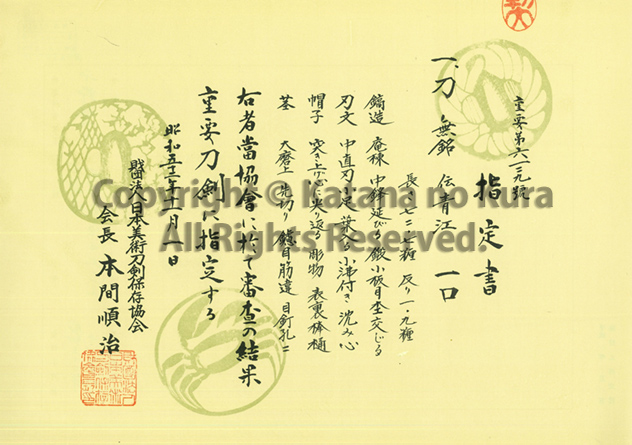 重要第六一二九號
指定書
一、刀 無銘 伝青江 一口
長さ七二・七糎 反り一・九糎
鎬造 庵棟 中鋒延びる 鍛小板目杢交じる
刃文 中直刃 小足 葉入る 小沸付き 沈み心
帽子 突き上げ心に尖り返る 彫物 表裏棒樋
茎 大磨上 先切り 鑢目筋違 目釘孔二
右者當協會に於て審査の結果
重要刀剣に指定する
昭和五十二年十一月一日
財団法人日本美術刀剣保存協会
会長 本間順治
Copyright © Katana no kura
All Rights Reserved.